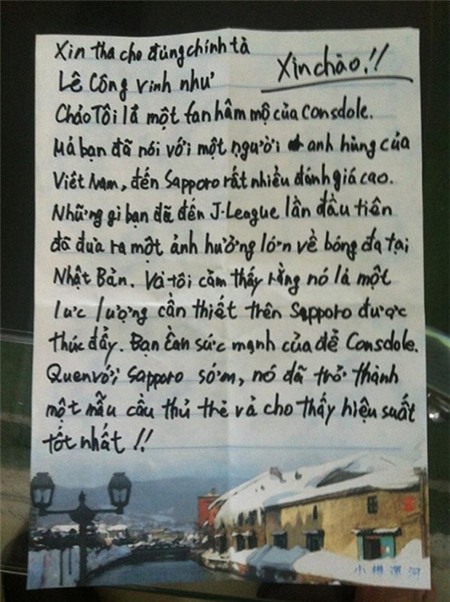 Xin tha cho đúng chính tả
Xin chào!!
Lê Công vinh như
Chảo Tôi lả một fan hâm mộ của Consdole.
Mả bạn đã nói với một người anh hùng của
Viết Nam, đến Sapporo rất nhiều đánh giá cao.
Những gì bạn đã đến J-League lần đầu tiên
đã đưa ra một ảnh hưởng lớn về bóng đa tại
Nhật Bản. Vả tôi cảm thấy rằng nó lả một
lưc lượng cần thiết trên Sapporo được
thúc đẩy. Bạn Cần sức mạnh của để Consdole.
Quen với Sapporo sớm, nó đã trở thảnh
một mẫu cầu thủ trẻ vả cho thấy hiệu suất
tốt nhất!!
小樽運河